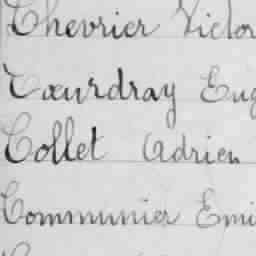 Chevrier Victor
Cœurdray Eug
Collet Adrien
Communier Emi